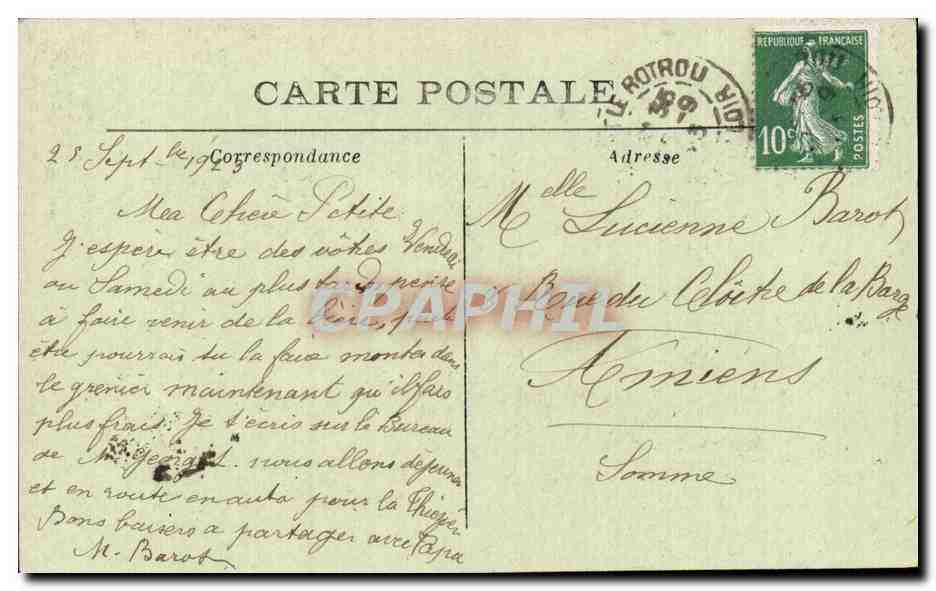 CARTE POSTALE
Correspondance
Adresse
REPUBLIQUE FRANÇAISE
10c
POSTES
LE ROTROU
23 Septbre 1923
Ma Chère Petite
J'espère être des vôtes Vendredi
ou Samedi au plus tard pense
à faire venir de la bière, peut
être pourrais tu la faire monter dans
le grenier maintenant qu'il fais
plus frais. Je t'écris sur le Bureau
de M. George L. nous allons déjeuner
et en route en auto pour la
Bons baisers a partager avec Papa
M. Barot
Melle Lucienne Barot
Rue du Cloître de la Barge
Amiens
Somme
CPAPHIL